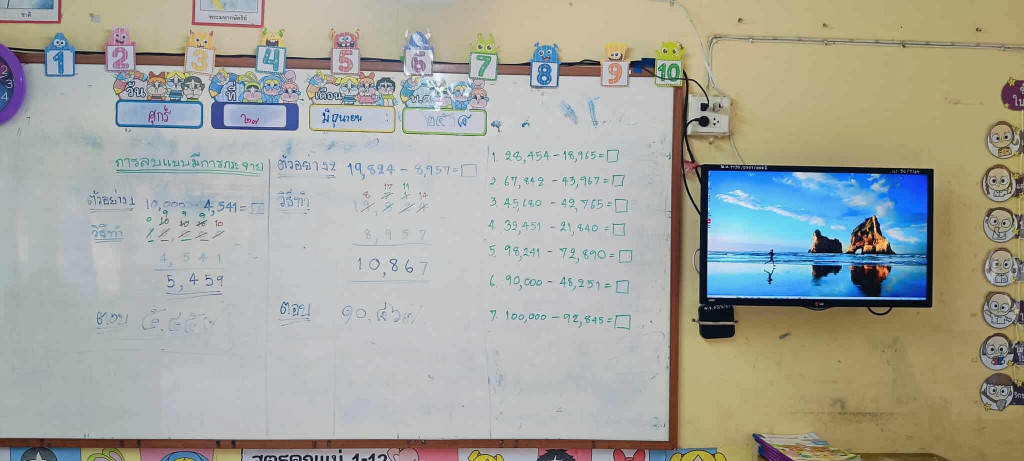 1 2 3 4 5 6 7 8 9 10
วันศุกร์ ที่ ๒๗ เดือน มิถุนายน พ.ศ.
การลบแบบมีการกระจาย
ตัวอย่าง 1 10,000 - 4,541 = □
วิธีทำ
4,541
5,459
ตอบ ๕,๔๕๙
ตัวอย่าง 2 19,824 - 8,957 = □
วิธีทำ
8,957
10,867
ตอบ ๑๐,๘๖๗
1. 28,454 - 18,965 = □
2. 67,842 - 43,967 = □
3. 45,680 - 42,765 = □
4. 32,451 - 21,840 = □
5. 98,241 - 72,890 = □
6. 90,000 - 48,251 = □
7. 100,000 - 92,845 = □
สูตรคูณแม่ 1-12